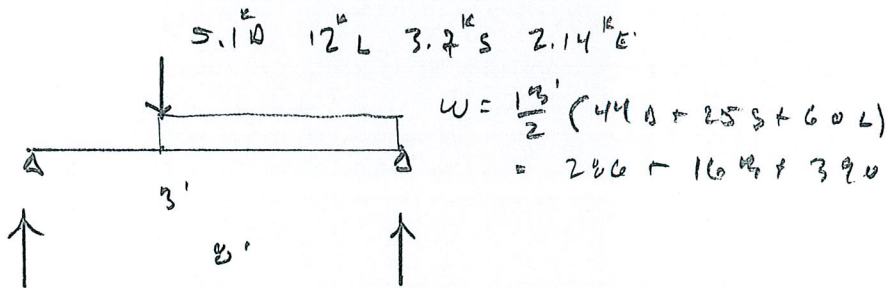 5.1ᴷD 12ᴷL 3.2ᴷS 2.14ᴷE
w = 13'/2 (44D + 25S + 60L)
= 286 + 163 + 390
3'
8'